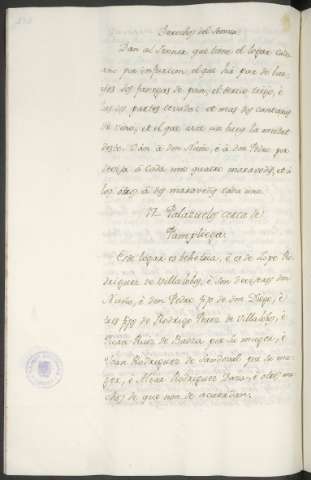 Derechos del Sennor.
Dan al Sennor que tiene el logar cada
año por infurcion, el que há par de bue-
yes dos fanegas de pan, el tercio trigo, è
las dos partes cevada: et mas dos cantaras
de vino, et el que a un buey la meitat
desto. Dán à don Nuño, è à don Pedro por
devisa à cada uno quatre maravedis, et à
los otros à dos maravedis cada uno.
17. Palazuelos cerca de
Pampliega.
Este logar es behetria, è es de Lope Ro-
driguez de Villalobos, è son deviseros don
Nuño, è don Pedro fijo de don Diego, è
los fijos de Rodrigo Perez de Villalobos, è
Juan Ruiz de Baeza por su muger, è
Joan Rodriguez de Sandoval por su mu-
ger, è Alvar Rodriguez Daza, è otros mu-
chos de que non se acuerdan.